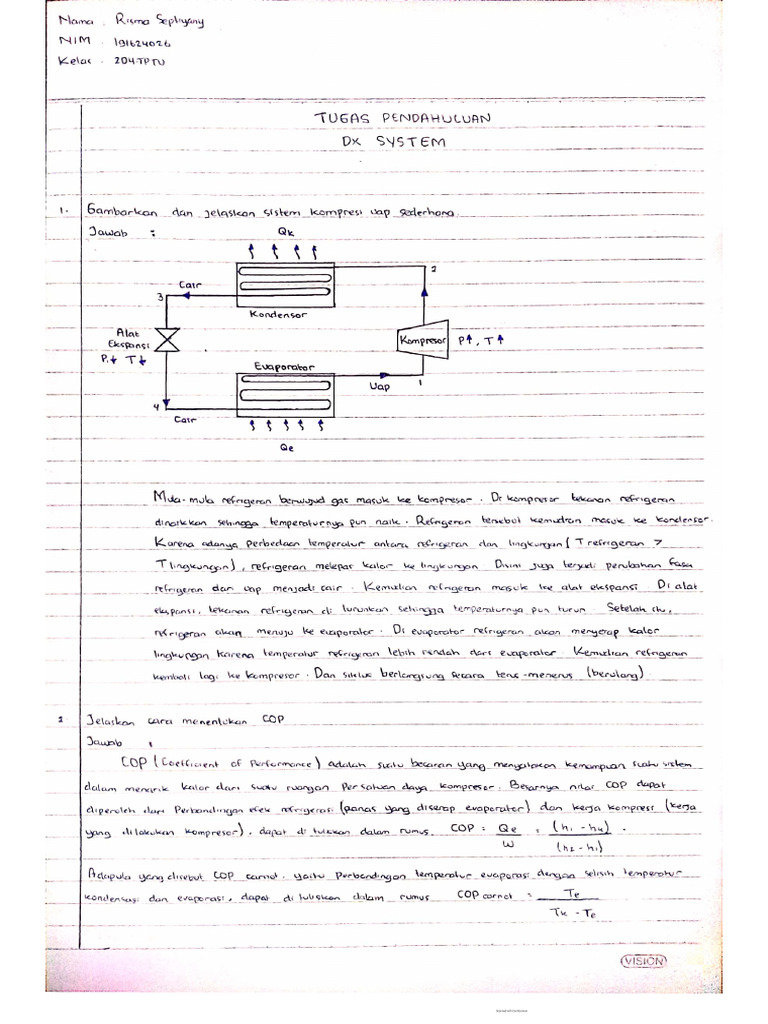 Nama : Risma Septiyany
NIM : 191624026
Kelas : 204 TPTU
TUGAS PENDAHULUAN
DX SYSTEM
1. Gambarkan dan jelaskan sistem kompresi uap sederhana.
Jawab :
Qk
2
Cair
3
Kondensor
Alat
Ekspansi
P↓ T↓
Kompresor P↑, T↑
Evaporator
1
Uap
4
Cair
Qe
Mula-mula refrigeran berwujud gas masuk ke kompresor. Di kompresor tekanan refrigeran
dinaikkan sehingga temperaturnya pun naik. Refrigeran tersebut kemudian masuk ke kondensor.
Karena adanya perbedaan temperatur antara refrigeran dan lingkungan (T refrigeran >
T lingkungan), refrigeran melepas kalor ke lingkungan. Disini juga terjadi perubahan fasa
refrigeran dari uap menjadi cair. Kemudian refrigeran masuk ke alat ekspansi. Di alat
ekspansi, tekanan refrigeran di turunkan sehingga temperaturnya pun turun. Setelah itu,
refrigeran akan menuju ke evaporator. Di evaporator refrigeran akan menyerap kalor
lingkungan karena temperatur refrigeran lebih rendah dari evaporator. Kemudian refrigeran
kembali lagi ke kompresor. Dan siklus berlangsung secara terus-menerus (berulang).
2. Jelaskan cara menentukan COP
Jawab :
COP (Coefficient of Performance) adalah suatu besaran yang menyatakan kemampuan suatu sistem
dalam menarik kalor dari suatu ruangan persatuan daya kompresor. Besarnya nilai COP dapat
diperoleh dari Perbandingan efek refrigerasi (panas yang diserap evaporator) dan kerja kompresi (kerja
yang dilakukan kompresor), dapat di tuliskan dalam rumus COP = Qe/W = (h1 - h4)/(h2 - h1).
Adapula yang disebut COP carnot, yaitu Perbandingan temperatur evaporasi dengan selisih temperatur
kondensasi dan evaporasi, dapat di tuliskan dalam rumus COP carnot = Te/Tk - Te
VISION